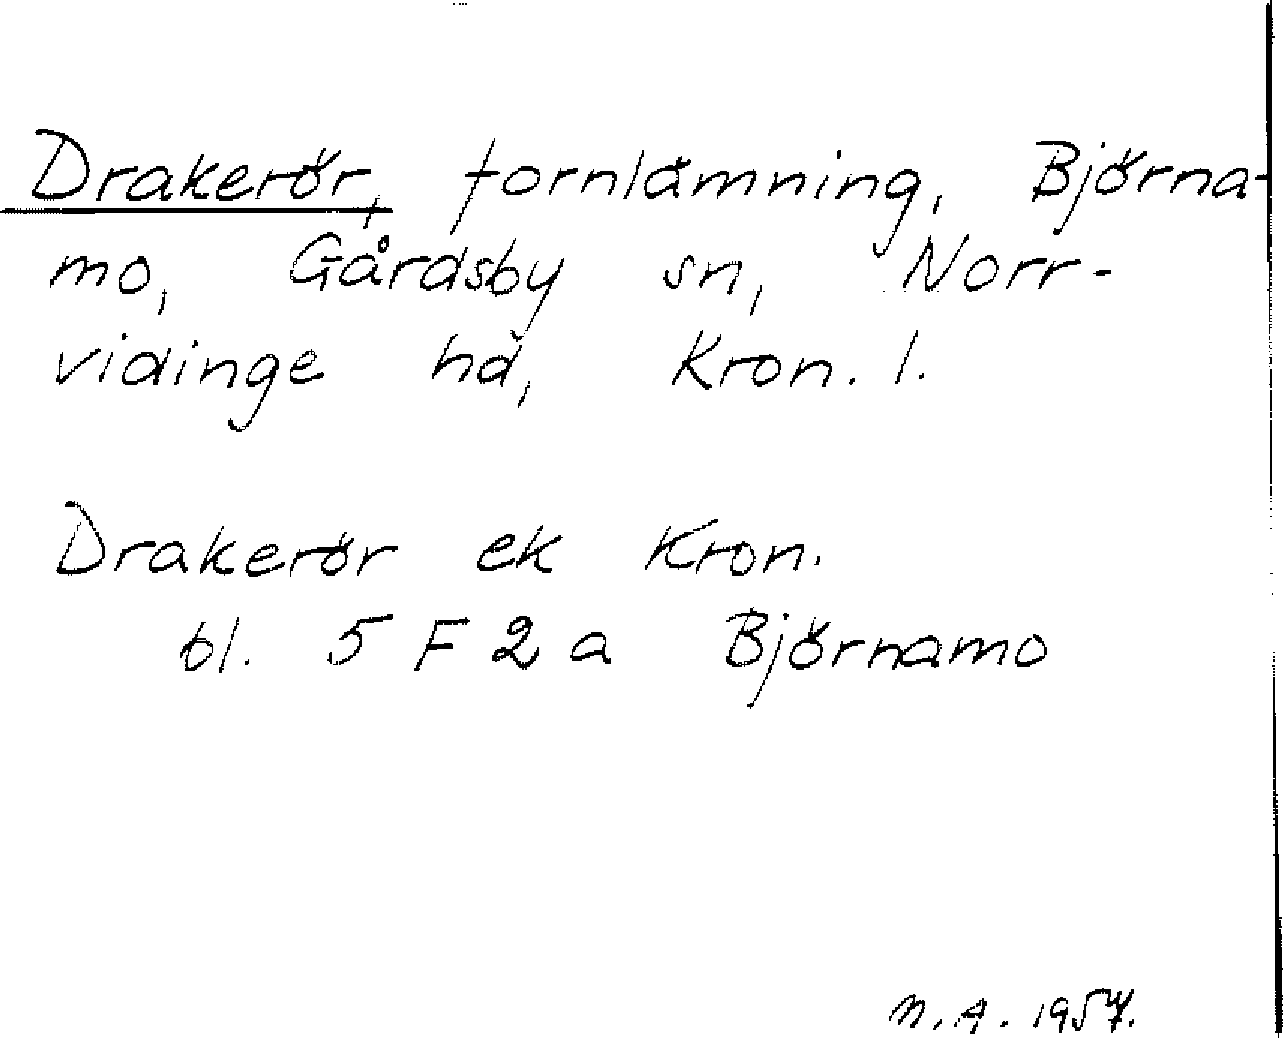 Drakerör, fornlämning, Björna-
mo, Gårdsby sn, Norr-
vidinge hd, Kron. l.
Drakerör ek Kron.
bl. 5 F 2 a Björnamo
N.A. 1957.